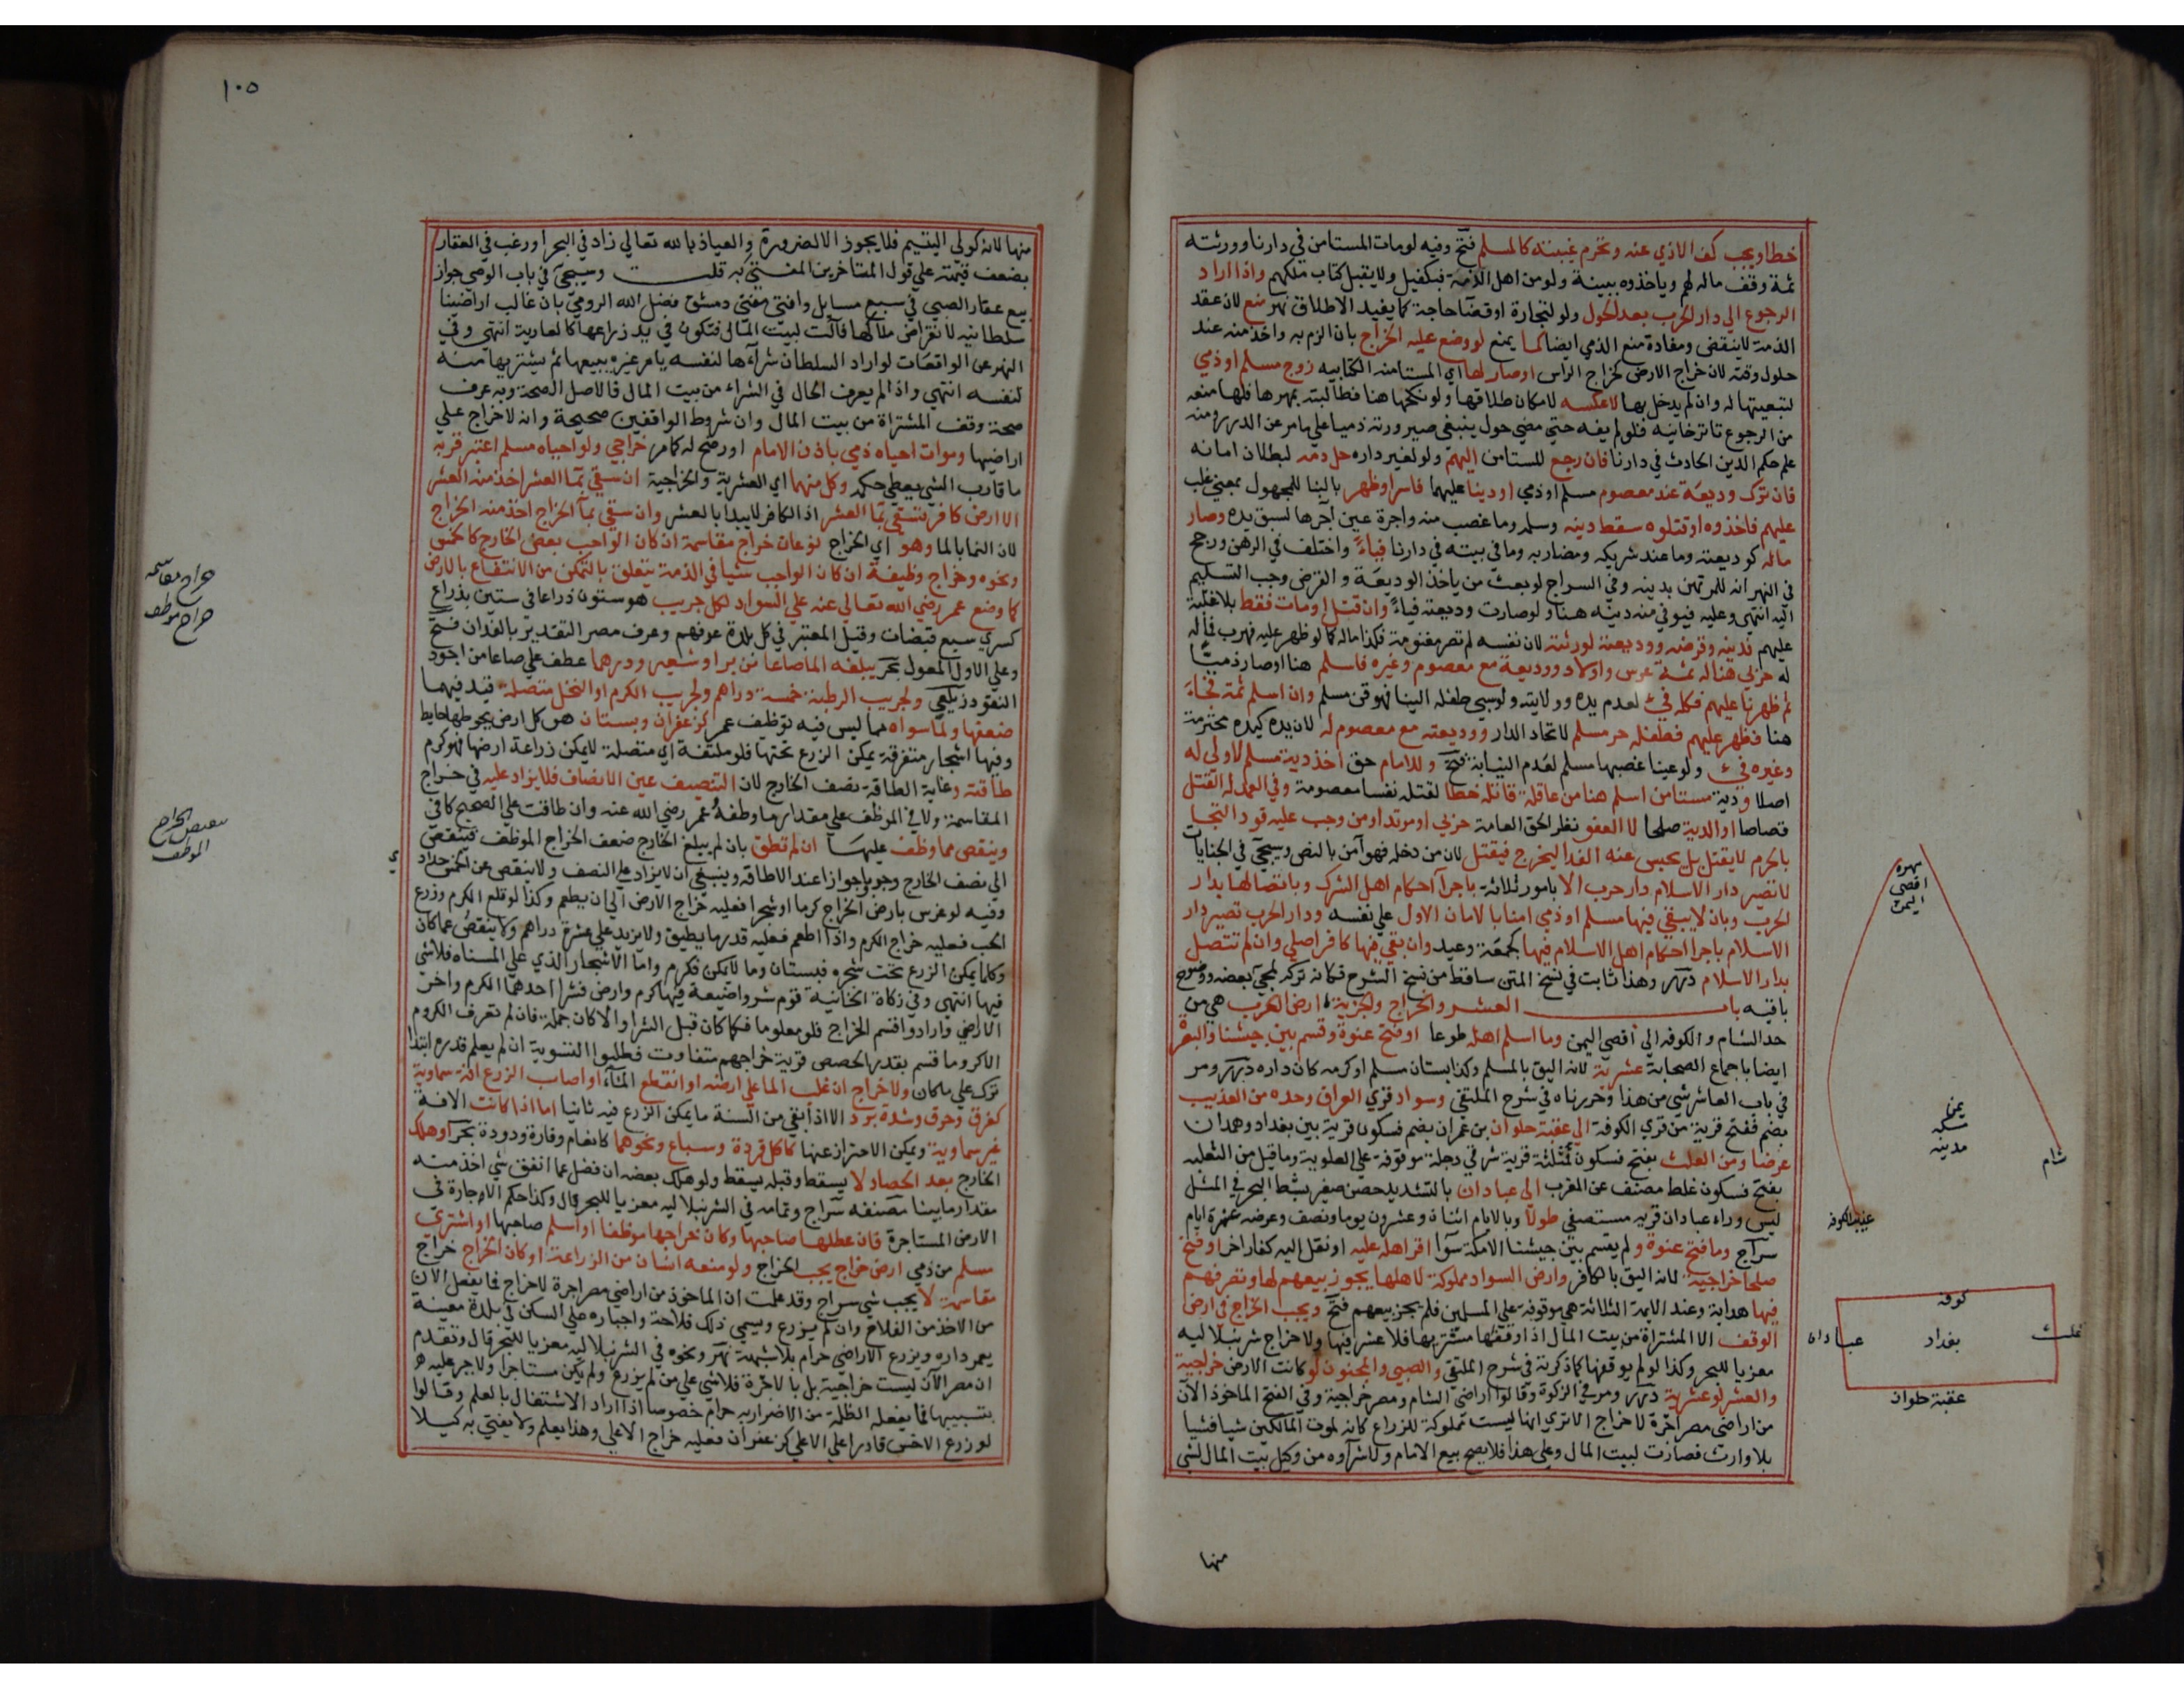 خطا ويجب كف الاذي عنه وتحرم غيبته كالمسلم فتح وفيه لو مات المستامن في دارنا وورثته
ثمة وقف ماله لهم وياخذوه ببينة ولو من اهل الذمة فبكفيل ولا يقبل كتاب ملكهم واذا اراد
الرجوع الي دار الحرب بعد الحول ولو لتجارة او قضا حاجة كما يفيد الاطلاق نهر منع لان عقد
الذمة لا ينقض ومفادة منع الذمي ايضا كما يمنع لو وضع عليه الخراج بان الزم به واخذ منه عند
حلول وقته لان خراج الارض كخراج الراس او صار لها اي المستامنه الكتابيه زوج مسلم او ذمي
لتبعيتها له وان لم يدخل بها لا عكسه لامكان طلاقها ولو نكحها هنا فطالبته بمهرها فلها منعه
من الرجوع تاترخانيه فلو لم يفه حتي مضي حول ينبغي صيرورته ذميا علي ما مر عن الدرر ومنه
علم حكم الدين الحادث في دارنا فان رجع المستامن اليهم ولو لغير داره حل دمه لبطلان امانه
فان ترك وديعة عند معصوم مسلم او ذمي او دينا عليهما فاسر او ظهر بالبنا للمجهول بمعني غلب
عليهم فاخذوه او قتلوه سقط دينه وسلمه وما غصب منه واجرة عين آجرها لسبق يده وصار
ماله كوديعته وما عند شريكه ومضاربه وما في بيته في دارنا فياءً واختلف في الرهن ورجح
في النهر انه للمرتهن بدينه وفي السراج لو بعث من ياخذ الوديعة والقرض وجب التسليم
اليه انتهي وعليه فيوفي منه دينه هنا ولو صارت وديعته فياءً وان قتل او مات فقط بلا غلبة
عليهم فدينه وقرضه ووديعته لورثته لان نفسه لم تصر مغنومة فكذا ماله كما لو ظهر عليه فهرب فماله
له حربي هنا له ثمة عرس واولاد ووديعة مع معصوم وغيره فاسلم هنا او صار ذميا
ثم ظهرنا عليهم فكله فيء لعدم يده وولايته ولو سبي طفله الينا فهو قن مسلم وان اسلم ثمة فجاء
هنا فظهر عليهم فطفله حر مسلم لاتحاد الدار ووديعته مع معصوم له لان يده كيده محترمة
وغيره فيء ولو عينا غصبها مسلم لعدم النيابة فتح وللامام حق اخذ دية مسلم لا ولي له
اصلا ودية مستامن اسلم هنا من عاقلة قاتله خطا لقتله نفسا معصومة وفي العمد له القتل
قصاصا او الدية صلحا لا العفو نظر الحق العامة حربي او مرتد او من وجب عليه قود التجا
بالحرم لا يقتل بل يحبس عنه الغدا ليخرج فيقتل لان من دخله فهو آمن بالنص وسيجي في الجنايات
لا تصير دار الاسلام دار حرب الا بامور ثلاثة باجراآ احكام اهل الشرك وباتصالها بدار
الحرب وبان لا يبقي فيها مسلم او ذمي امنا بالامان الاول علي نفسه ودار الحرب تصير دار
الاسلام باجرا احكام اهل الاسلام فيها كجمعة وعيد وان بقي فيها كافر اصلي وان لم تتصل
بدار الاسلام درر وهذا ثابت في نسخ المتن ساقط من نسخ الشرح فكانه تركه لمجي بعضه ووضوح
باقيه باب العشر والخراج والجزية ارض العرب هي من
حد الشام والكوفه الي اقصي اليمن وما اسلم اهله طوعا او فتح عنوة وقسم بين جيشنا والبصرة
ايضا باجماع الصحابة عشرية لانه اليق بالمسلم وكذا بستان مسلم او كرمه كان داره درر ومر
في باب العاشر شي من هذا وحررناه في شرح الملتقي وسواد قري العراق وحده من العذيب
بضم ففتح قرية من قري الكوفة الي عقبة حلوان بن عمران بضم فسكون قرية بين بغداد وهمدان
عرضا ومن العلث بفتح فسكون فمثلثة قرية شرقي دجلة موقوفة علي العلوية وما قيل من الثعلبه
بفتح فسكون غلط مصنف عن المغرب الي عبادان بالتشديد حصن صغير بشط البحر في المثل
ليس وراء عبادان قريه مستصفي طولا وبالايام اثنان وعشرون يوما ونصف وعرضه عشرة ايام
سراج وما فتح عنوة ولم يقسم بين جيشنا الا مكة سوآا اقر اهله عليه او نقل اليه كفار اخر او فتح
صلحا خراجية لانه اليق بالكافر وارض السواد مملوكة لاهلها يجوز بيعهم لها وتصرفهم
فيها هداية وعند الايمة الثلاثة هي موقوفة علي المسلمين فلم يجز بيعهم فتح ويجب الخراج في ارض
الوقف الا المشتراة من بيت المال اذا وقفها مشتريها فلا عشر فيها ولا خراج شرنبلاليه
معزيا للبحر وكذا لو لم يوقفها كما ذكرته في شرح الملتقي والصبي والمجنون لو كانت الارض خراجية
والعشر لو عشرية درر ومر في الزكوة وقالوا اراضي الشام ومصر خراجية وفي الفتح الماخوذ الآن
من اراضي مصر اجرة لا خراج الا تري انها ليست مملوكة للزراع كانه لموت المالكين شيا فشيا
بلا وارث فصارت لبيت المال وعلي هذا فلا يصح بيع الامام ولا شراوه من وكيل بيت المال لشي
منها
مهره
اقصي
اليمن
يمن
مكه
مدينه
شام
عذيب الكوفه
كوفه
علث
بغداد
عبادان
عقبة حلوان
١٠٥
منها لانه كولي اليتيم فلا يجوز الا لضرورة والعياذ بالله تعالي زاد في البحر او رغب في العقار
بضعف قيمته علي قول المتاخرين المفتي به قلت وسيجي في باب الوصي جواز
بيع عقار الصبي في سبع مسايل وافتي مفتي دمشق فضل الله الرومي بان غالب اراضينا
سلطانيه لانقراض ملاكها فآلت لبيت المال فتكون في يد زراعها كالعارية انتهي وفي
النهر عن الواقعات لو اراد السلطان شرآءها لنفسه يامر غيره ببيعها ثم يشتريها منه
لنفسه انتهي واذا لم يعرف الحال في الشراء من بيت المال فالاصل الصحة وبه عرف
صحة وقف المشتراة من بيت المال وان شروط الواقفين صحيحة وانه لا خراج علي
اراضيها وموات احياه ذمي باذن الامام او رضخ له كما مر خراجي ولو احياه مسلم اعتبر قربه
ما قارب الشي يعطي حكمه وكل منهما اي العشرية والخراجية ان سقي بمآ العشر اخذ منه العشر
الا ارض كافر تسقي بمآ العشر اذ الكافر لا يبدا بالعشر وان سقي بمآ الخراج اخذ منه الخراج
لان النما بالما وهو اي الخراج نوعان خراج مقاسمة ان كان الواجب بعض الخارج كالخمس
ونحوه وخراج وظيفة ان كان الواجب شيا في الذمة يتعلق بالتمكن من الانتفاع بالارض
كما وضع عمر رضي الله تعالي عنه علي السواد لكل جريب هو ستون ذراعا في ستين بذراع
كسري سبع قبضات وقيل المعتبر في كل بلدة عرفهم وعرف مصر التقدير بالفدان فتح
وعلي الاول المعول بحر يبلغه الما صاعا من بر او شعير ودرهما عطف علي صاعا من اجود
النقود زيلعي ولجريب الرطبة خمسة دراهم ولجريب الكرم او النخل متصلة قيد فيهما
ضعفها ولما سواه مما ليس فيه توظيف عمر كزعفران وبستان هو كل ارض يحوطها حايط
وفيها اشجار متفرقة يمكن الزرع تحتها فلو ملتفة اي متصلة لا يمكن زراعة ارضها فهو كرم
طاقته وغاية الطاقة نصف الخارج لان التنصيف عين الانصاف فلا يزاد عليه في خراج
المقاسمة ولا في الموظف علي مقدار ما وظفه عمر رضي الله عنه وان طاقت علي الصحيح كافي
وينقص مما وظف عليها ان لم تطق بان لم يبلغ الخارج ضعف الخراج الموظف فينقص
الي نصف الخارج وجوبا وجوازا عند الاطاقة وينبغي ان لا يزاد علي النصف ولا ينقص عن الخمس حدادي
وفيه لو غرس بارض الخراج كرما او شجرا فعليه خراج الارض الي ان يطعم وكذا لو قلع الكرم وزرع
الحب فعليه خراج الكرم واذا اطعم فعليه قدر ما يطيق ولا يزيد علي عشرة دراهم ولا ينقص عما كان
وكلما يمكن الزرع تحت شجره فبستان وما لا يمكن فكرم واما الاشجار الذي علي المسناه فلا شي
فيها انتهي وفي زكاة الخانية قوم شروا ضيعة فيها كرم وارض فشرا احدهما الكرم واخر
الاراضي وارادوا قسم الخراج فلو معلوما فكما كان قبل الشرا والا كان جملة فان لم تعرف الكروم
الا كروما قسم بقدر الحصص قرية خراجهم متفاوت فطلبوا التسوية ان لم يعلم قدره ابتدا
ترك علي ما كان ولا خراج ان غلب الما علي ارضه او انقطع المآء او اصاب الزرع افة سماوية
كغرق وحرق وشدة برد الا اذا بقي من السنة ما يمكن الزرع فيه ثانيا اما اذا كانت الافة
غير سماوية ويمكن الاحتراز عنها كاكل قردة وسباع ونحوهما كانعام وفارة ودودة بحر او هلك
الخارج بعد الحصاد لا يسقط وقبله يسقط ولو هلك بعضه ان فضل عما انفق شي اخذ منه
مقدار ما بينا مصنفه سراج وتمامه في الشرنبلاليه معزيا للبحر قال وكذا حكم الاجارة في
الارض المستاجرة فان عطلها صاحبها وكان خراجها موظفا او اسلم صاحبها او اشتري
مسلم من ذمي ارض خراج يجب الخراج ولو منعه انسان من الزراعة او كان الخراج خراج
مقاسمة لا يجب شي سراج وقد علمت ان الماخوذ من اراضي مصر اجرة لا خراج فما يفعل الان
من الاخذ من الفلاح وان لم يزرع ويسمي ذلك فلاحة واجباره علي السكن في بلدة معينة
يعمر داره ويزرع الاراضي حرام بلا شبهة نهر ونحوه في الشرنبلاليه معزيا للبحر قال وتقدم
ان مصر الآن ليست خراجية بل بالاجرة فلا شي علي من لم يزرع ولم يكن مستاجرا ولا جبر عليه
بتسييبها فما يفعله الظلمة من الاضرار به حرام خصوصا اذا اراد الاشتغال بالعلم وقالوا
لو زرع الاخس قادرا علي الاعلي كزعفران فعليه خراج الاعلي وهذا يعلم ولا يفتي به كيلا
خراج مقاسمه
خراج موظف
الخراج
الموظف